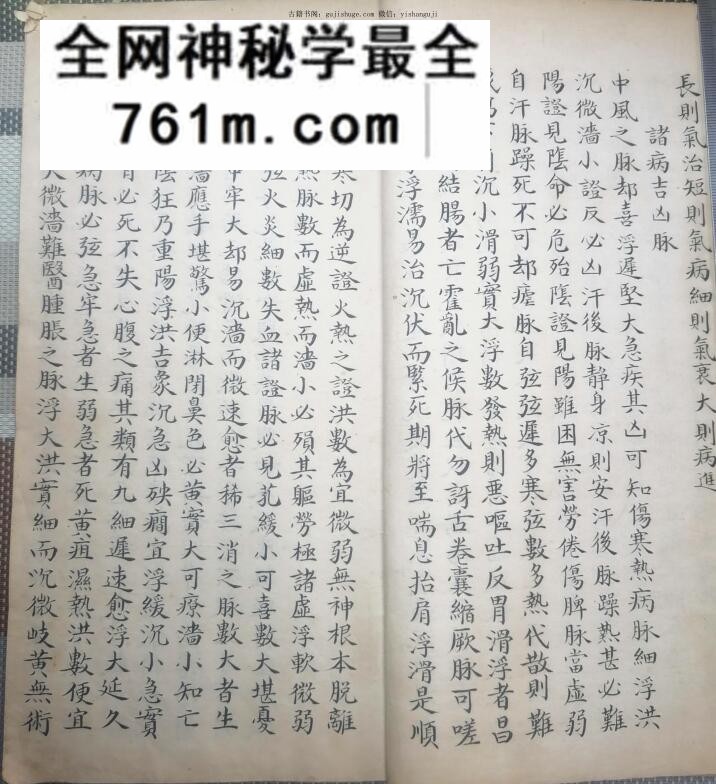 古籍书阁：gujishuge.com 微信：yishanguji
全网神秘学最全
761m.com
長則氣治短則氣病細則氣衰大則病進
諸病吉凶脉
中風之脉却喜浮遲堅大急疾其凶可知傷寒熱病脉細浮洪
沉微濇小證反必凶汗後脉静身凉則安汗後脉躁熱甚必難
陽證見陰命必危殆陰證見陽雖困無害勞倦傷脾脉當虚弱
自汗脉躁死不可却瘧脉自弦弦遲多寒弦數多熱代散則難
沉小滑弱實大浮數發熱則悪嘔吐反胃滑浮者昌
結腸者亡霍亂之候脉代勿訝舌卷囊縮厥脉可嗟
浮濡易治沉伏而緊死期將至喘息抬肩浮滑是順
寒切為逆證火熱之證洪數為宜微弱無神根本脱離
熱脉數而虚熱而濇小必殞其軀勞極諸虚浮軟微弱
弦火炎細數失血諸證脉必見芤緩小可喜數大堪憂
牢大却易沉濇而微速愈者稀三消之脉數大者生
濇應手堪驚小便淋閉鼻色必黄實大可療濇小知亡
陰狂乃重陽浮洪吉象沉急凶殃癇宜浮緩沉小急實
必死不失心腹之痛其類有九細遲速愈浮大延久
病脉必弦急牢急者生弱急者死黄疸濕熱洪數便宜
大微濇難醫腫脹之脉浮大洪實細而沉微岐黄無術